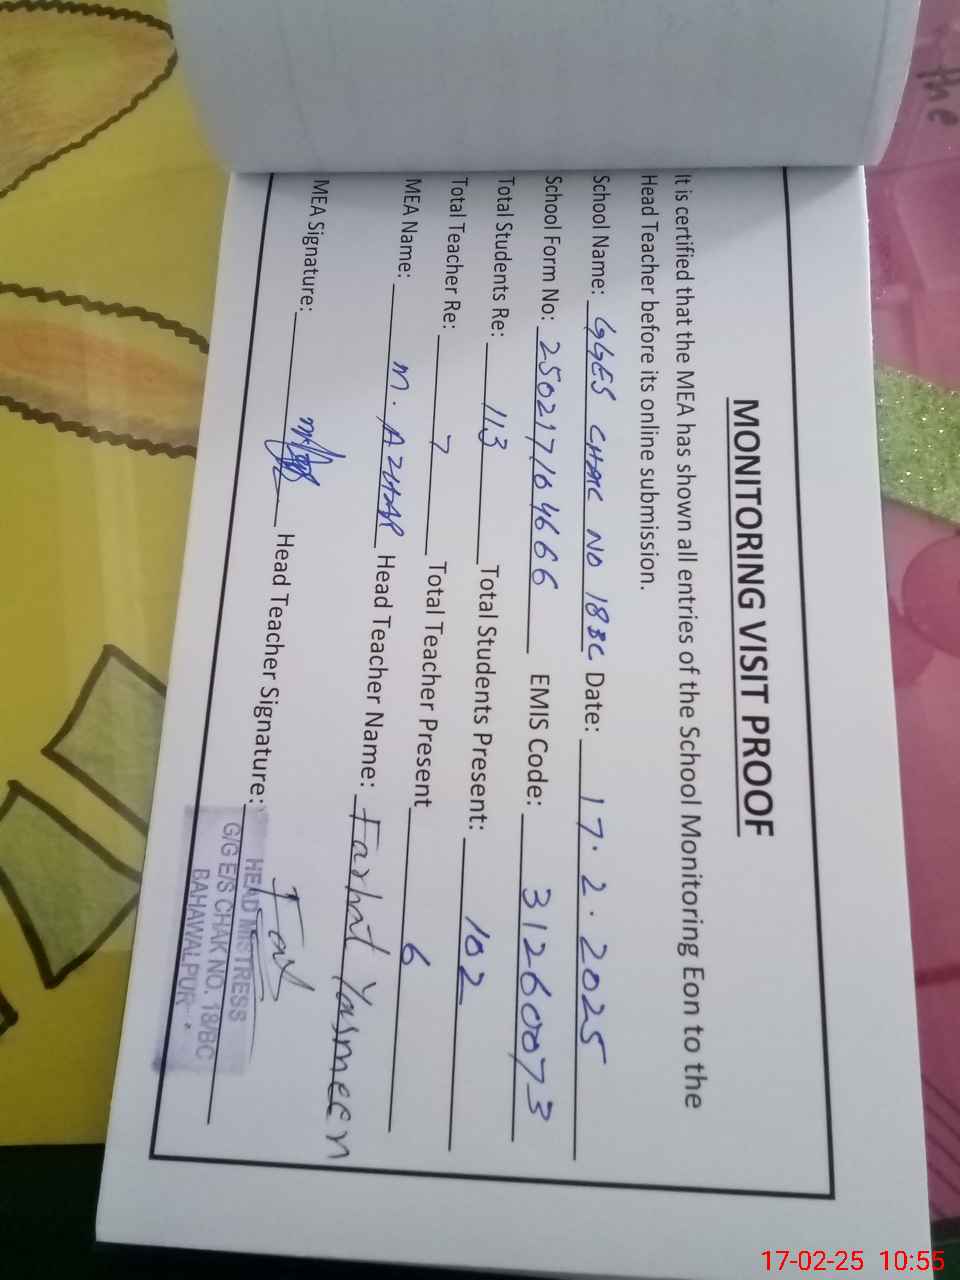 MONITORING VISIT PROOF
It is certified that the MEA has shown all entries of the School Monitoring Eon to the
Head Teacher before its online submission.
School Name: GGES CHAK NO 18BC Date: 17.2.2025
School Form No: 250217164666 EMIS Code: 31260073
Total Students Re: 113 Total Students Present: 102
Total Teacher Re: 7 Total Teacher Present 6
MEA Name: M. AZHAR Head Teacher Name: Farhat Yasmeen
MEA Signature: Head Teacher Signature:
HEAD MISTRESS
G/G E/S CHAK NO. 18/BC
BAHAWALPUR
the
17-02-25 10:55